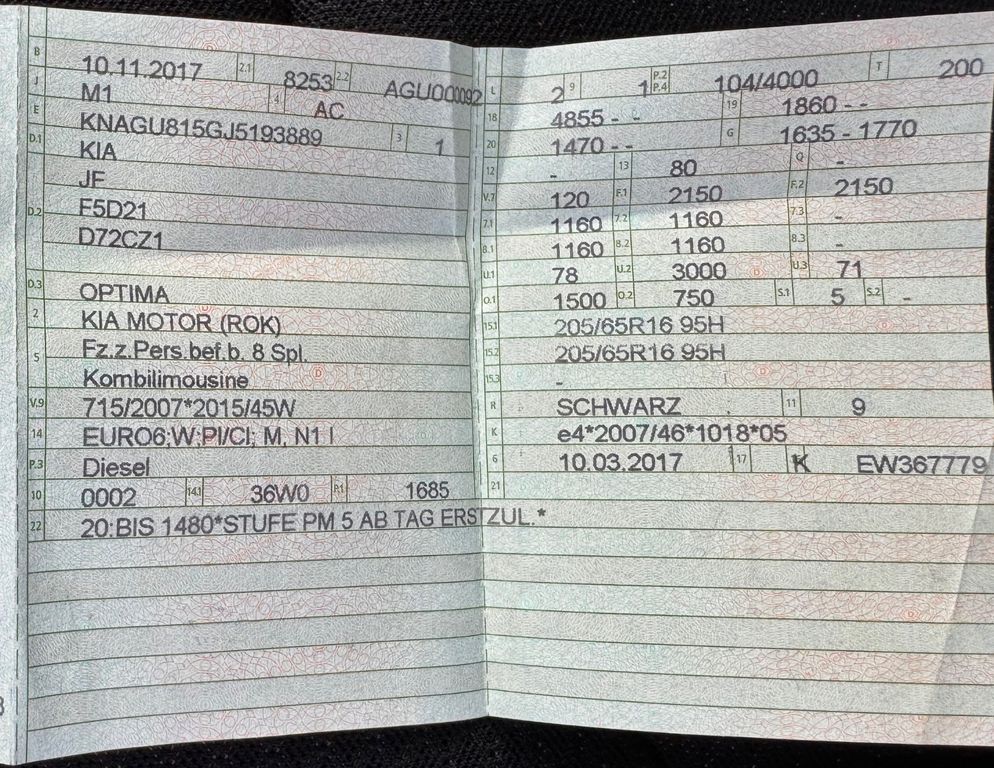 B 10.11.2017 2.1 8253 2.2 AGU000092
J M1 4 AC
E KNAGU815GJ5193889 3 1
D.1 KIA
JF
D.2 F5D21
D72CZ1
D.3 OPTIMA
2 KIA MOTOR (ROK)
5 Fz.z.Pers.bef.b. 8 Spl.
Kombilimousine
V.9 715/2007*2015/45W
14 EURO6;W;PI/CI; M, N1 I
P.3 Diesel
10 0002 14.1 36W0 P.1 1685
22 20:BIS 1480*STUFE PM 5 AB TAG ERSTZUL.*
L 2 9 1 P.2 P.4 104/4000 T 200
18 4855 - - 19 1860 - -
20 1470 - - G 1635 - 1770
12 - 13 80 Q -
V.7 120 F.1 2150 F.2 2150
7.1 1160 7.2 1160 7.3 -
8.1 1160 8.2 1160 8.3 -
U.1 78 U.2 3000 U.3 71
O.1 1500 O.2 750 S.1 5 S.2 -
15.1 205/65R16 95H
15.2 205/65R16 95H
15.3 -
R SCHWARZ 11 9
K e4*2007/46*1018*05
6 10.03.2017 17 K EW367779
21